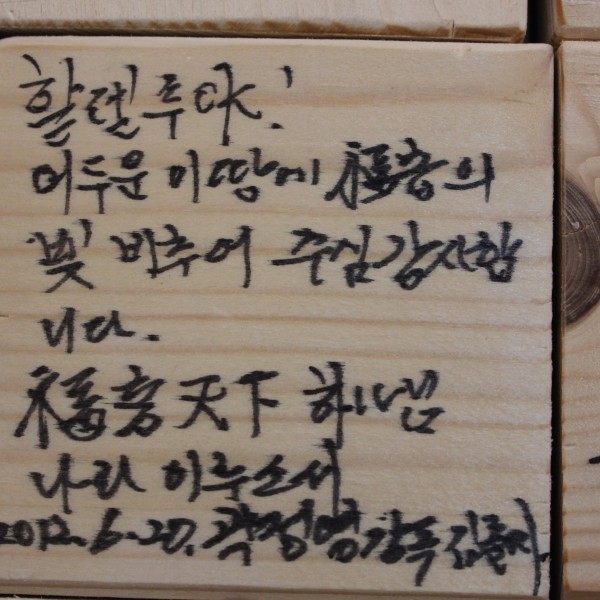 할렐루야!
어두운 이 땅에 福音의
빛 비추어 주심 감사합
니다.
福音天下 하나님
나라 이루소서
2012. 6. 20.